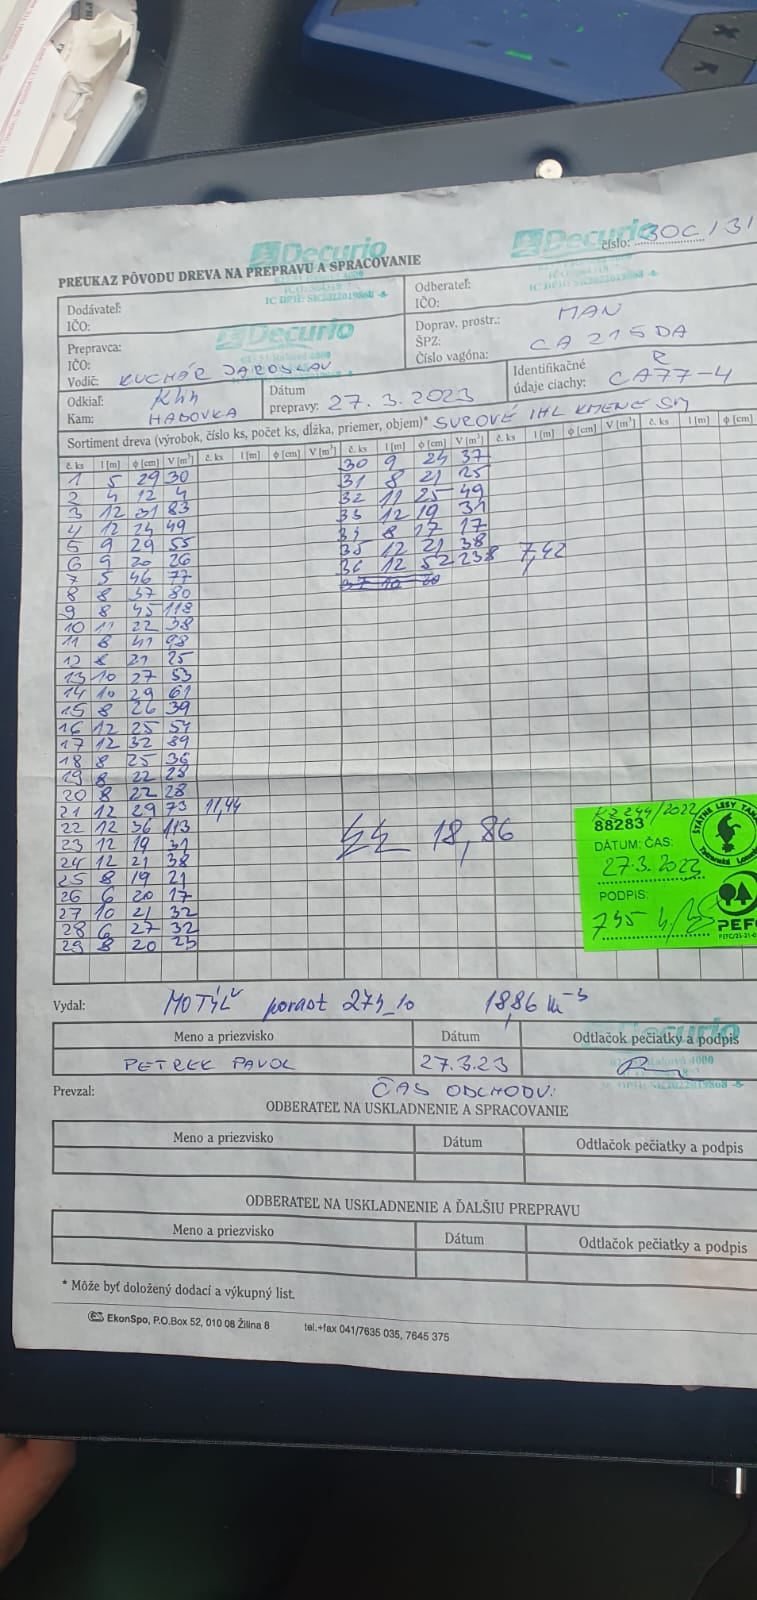 Decurio
Decurio
číslo: 30C/31
PREUKAZ PÔVODU DREVA NA PREPRAVU A SPRACOVANIE
IČ DPH: SK2022019868
Dodávateľ:
IČO:
Odberateľ:
IČO:
Decurio
Prepravca:
IČO:
Vodič: KUCHÁR JAROSLAV
Doprav. prostr.: MAN
ŠPZ: CA 215DA
Číslo vagóna: R
Odkiaľ: Khh
Kam: HABOVKA
Dátum
prepravy: 27. 3. 2023
Identifikačné
údaje ciachy: CA77-4
Sortiment dreva (výrobok, číslo ks, počet ks, dĺžka, priemer, objem)* SUROVÉ IHL KMENE SM
č. ks l [m] ϕ [cm] V [m³] č. ks l [m] ϕ [cm] V [m³] č. ks l [m] ϕ [cm] V [m³] č. ks l [m] ϕ [cm] V [m³] č. ks l [m] ϕ [cm]
1 5 29 30
2 4 12 4
3 12 31 83
4 12 24 49
5 9 29 55
6 9 20 26
7 5 46 77
8 8 37 80
9 8 45 118
10 11 22 38
11 8 41 98
12 8 21 25
13 10 27 53
14 10 29 61
15 8 26 39
16 12 25 54
17 12 32 89
18 8 25 36
19 8 22 28
20 8 22 28
21 12 29 73 11,44
22 12 36 113
23 12 19 31
24 12 21 38
25 8 19 21
26 6 20 17
27 10 21 32
28 6 27 32
29 8 20 23
30 9 24 37
31 8 21 25
32 11 25 49
33 12 19 31
34 8 17 17
35 12 21 38
36 12 52 238 7,42
37 10 20
18,86
88283
ŠTÁTNE LESY
DÁTUM: ČAS:
27.3.2023
PODPIS:
PEFC
Vydal: MOTÝĽ porast 274_10 18,86 m-3
Meno a priezvisko Dátum Odtlačok pečiatky a podpis
Decurio
PETREK PAVOL 27.3.23
Prevzal: ČAS ODCHODU:
ODBERATEĽ NA USKLADNENIE A SPRACOVANIE
Meno a priezvisko Dátum Odtlačok pečiatky a podpis
ODBERATEĽ NA USKLADNENIE A ĎALŠIU PREPRAVU
Meno a priezvisko Dátum Odtlačok pečiatky a podpis
* Môže byť doložený dodací a výkupný list.
EkonSpo, P.O.Box 52, 010 08 Žilina 8 tel.+fax 041/7635 035, 7645 375